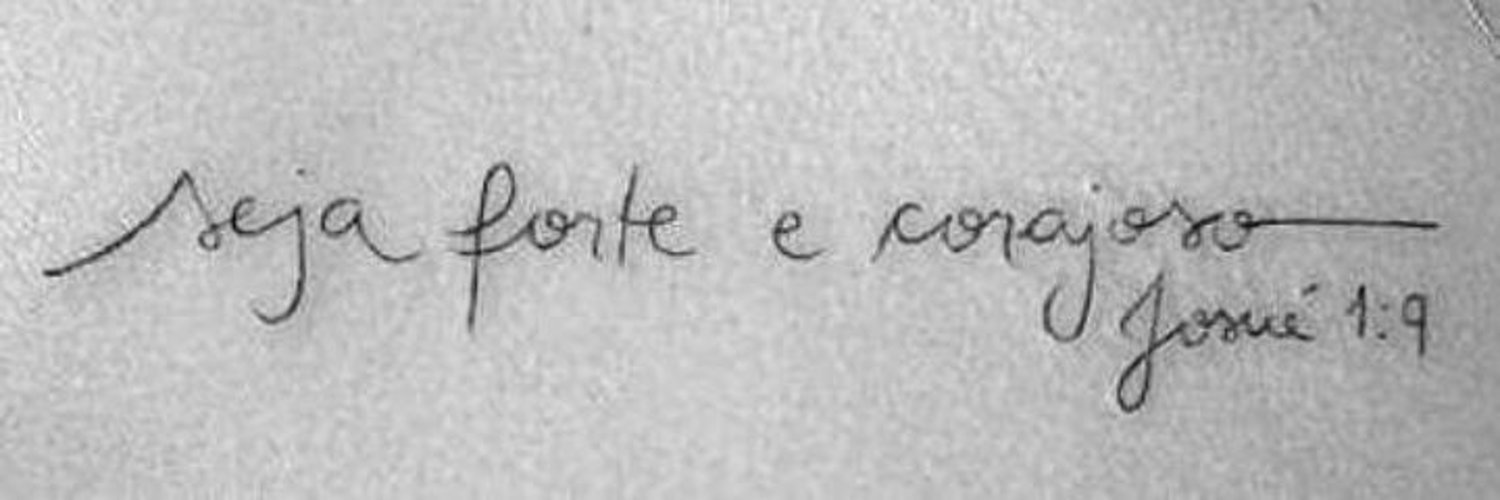 seja forte e corajoso
Josué 1:9